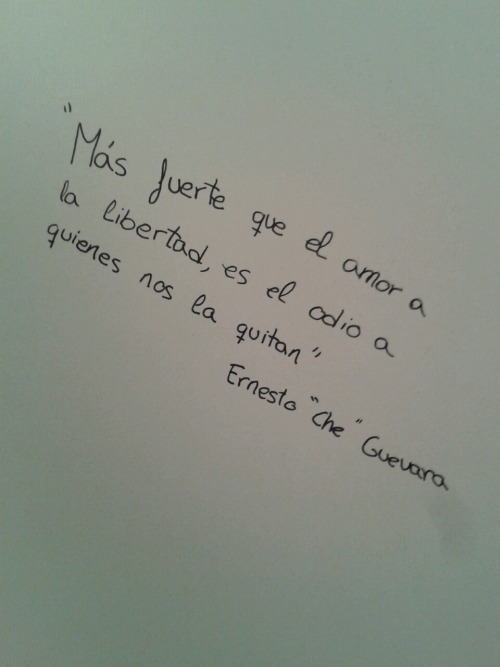 "Más fuerte que el amor a
la libertad, es el odio a
quienes nos la quitan"
Ernesto "Che" Guevara